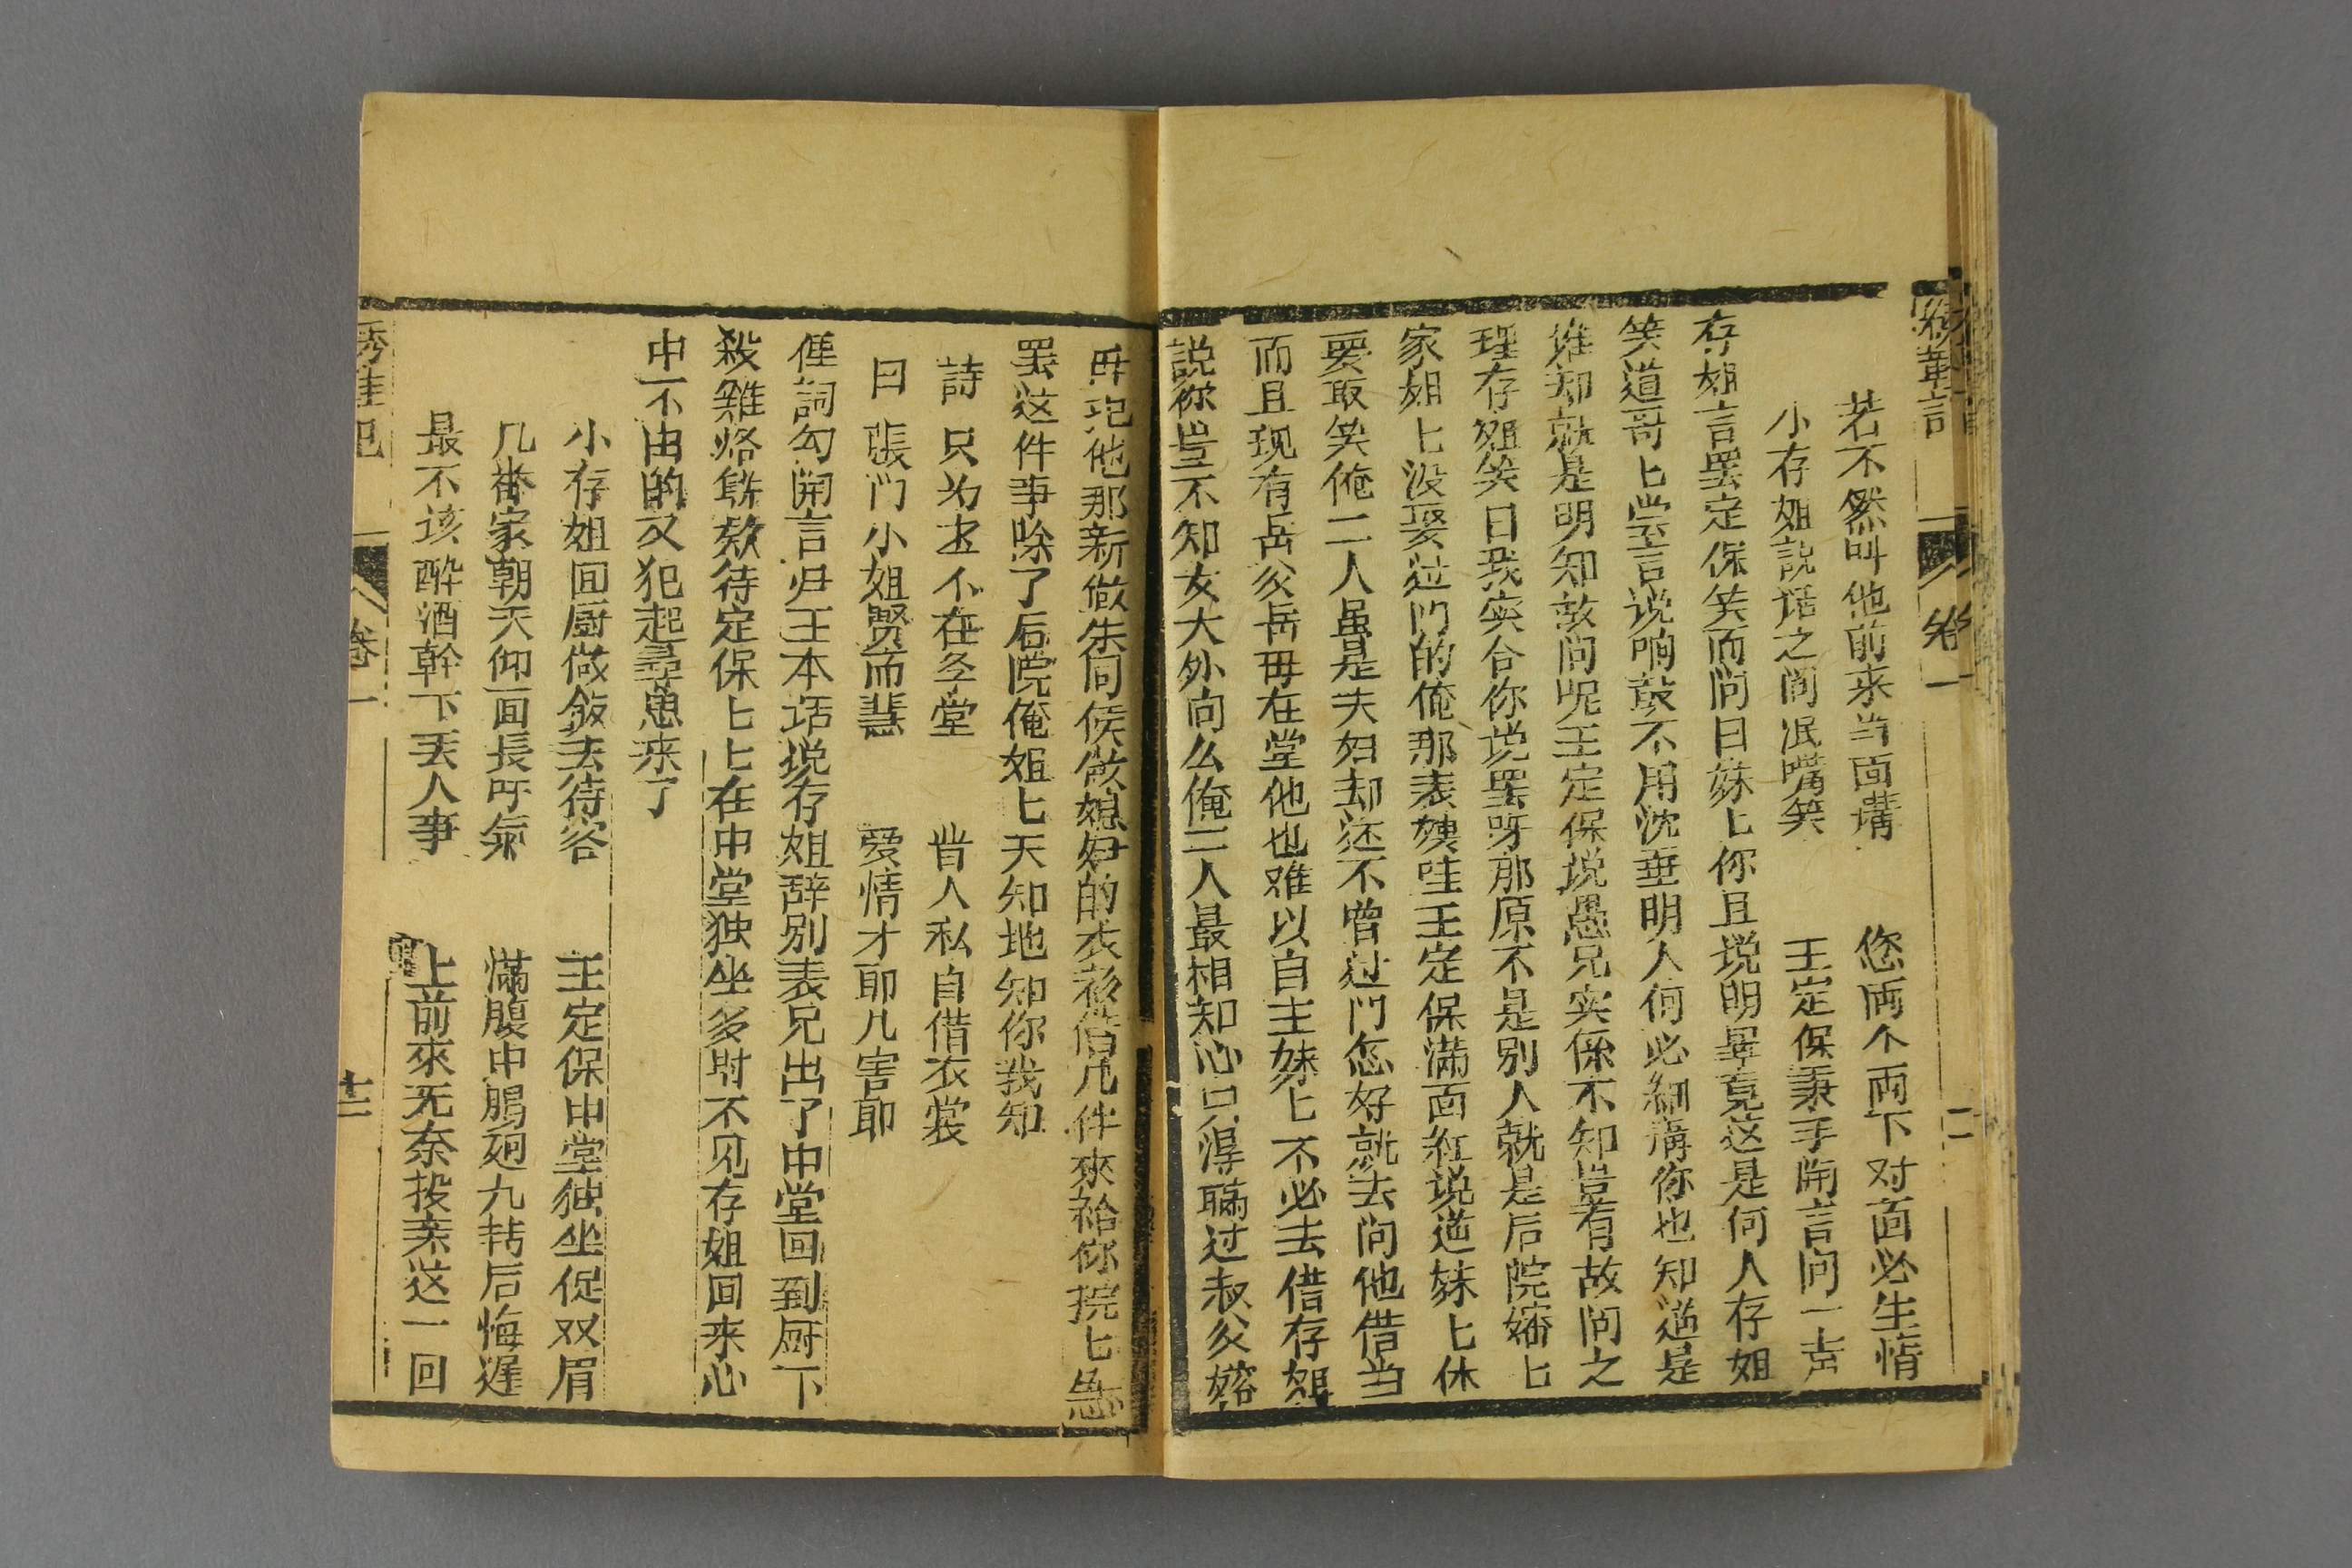 卷一
若不然叫他前来当面講　您両个両下对面必生情
小存姐説话之间泯嘴笑　王定保秉手開言问一声
存姐言罢定保笑而问曰妹匕你且说明畢竟这是何人存姐
笑道哥匕尝言说响鼓不用沈垂明人何必細講你也知道是
谁却就是明知故问呢王定保说愚兄实係不知豈有故问之
理存姐笑曰我实合你说罢呀那原不是别人就是后院嫆匕
家姐匕没娶过门的俺那表姨哇王定保满面紅说道妹匕休
要取笑俺二人虽是夫妇却还不曾过门怎好就去问他借当
而且现有岳父岳母在堂他也难以自主妹匕不必去借存姐
説你岂不知女大外向么俺二人最相知心只淂瞞过叔父嫆
毋把他那新做朱同侯做媳妇的衣衫借几件來給你搲匕急
罢这件事除了后院俺姐匕天知地知你我知
詩　只为孟不在冬堂　昔人私自借衣裳
曰　張门小姐贤而慧　爱情才耶几害耶
俚詞勾開言归王本话说存姐辞别表兄出了中堂回到厨下
殺雞烙餅欸待定保匕匕在中堂独坐多时不见存姐回来心
中不由的又犯起尋思来了
小存姐回厨做飯去待客　王定保中堂独坐促双眉
几番家朝天仰面長吁氣　滿腹中腸廻九转后悔遲
最不该酔酒幹下丟人事　上前來无奈投亲这一回
卷一
十二